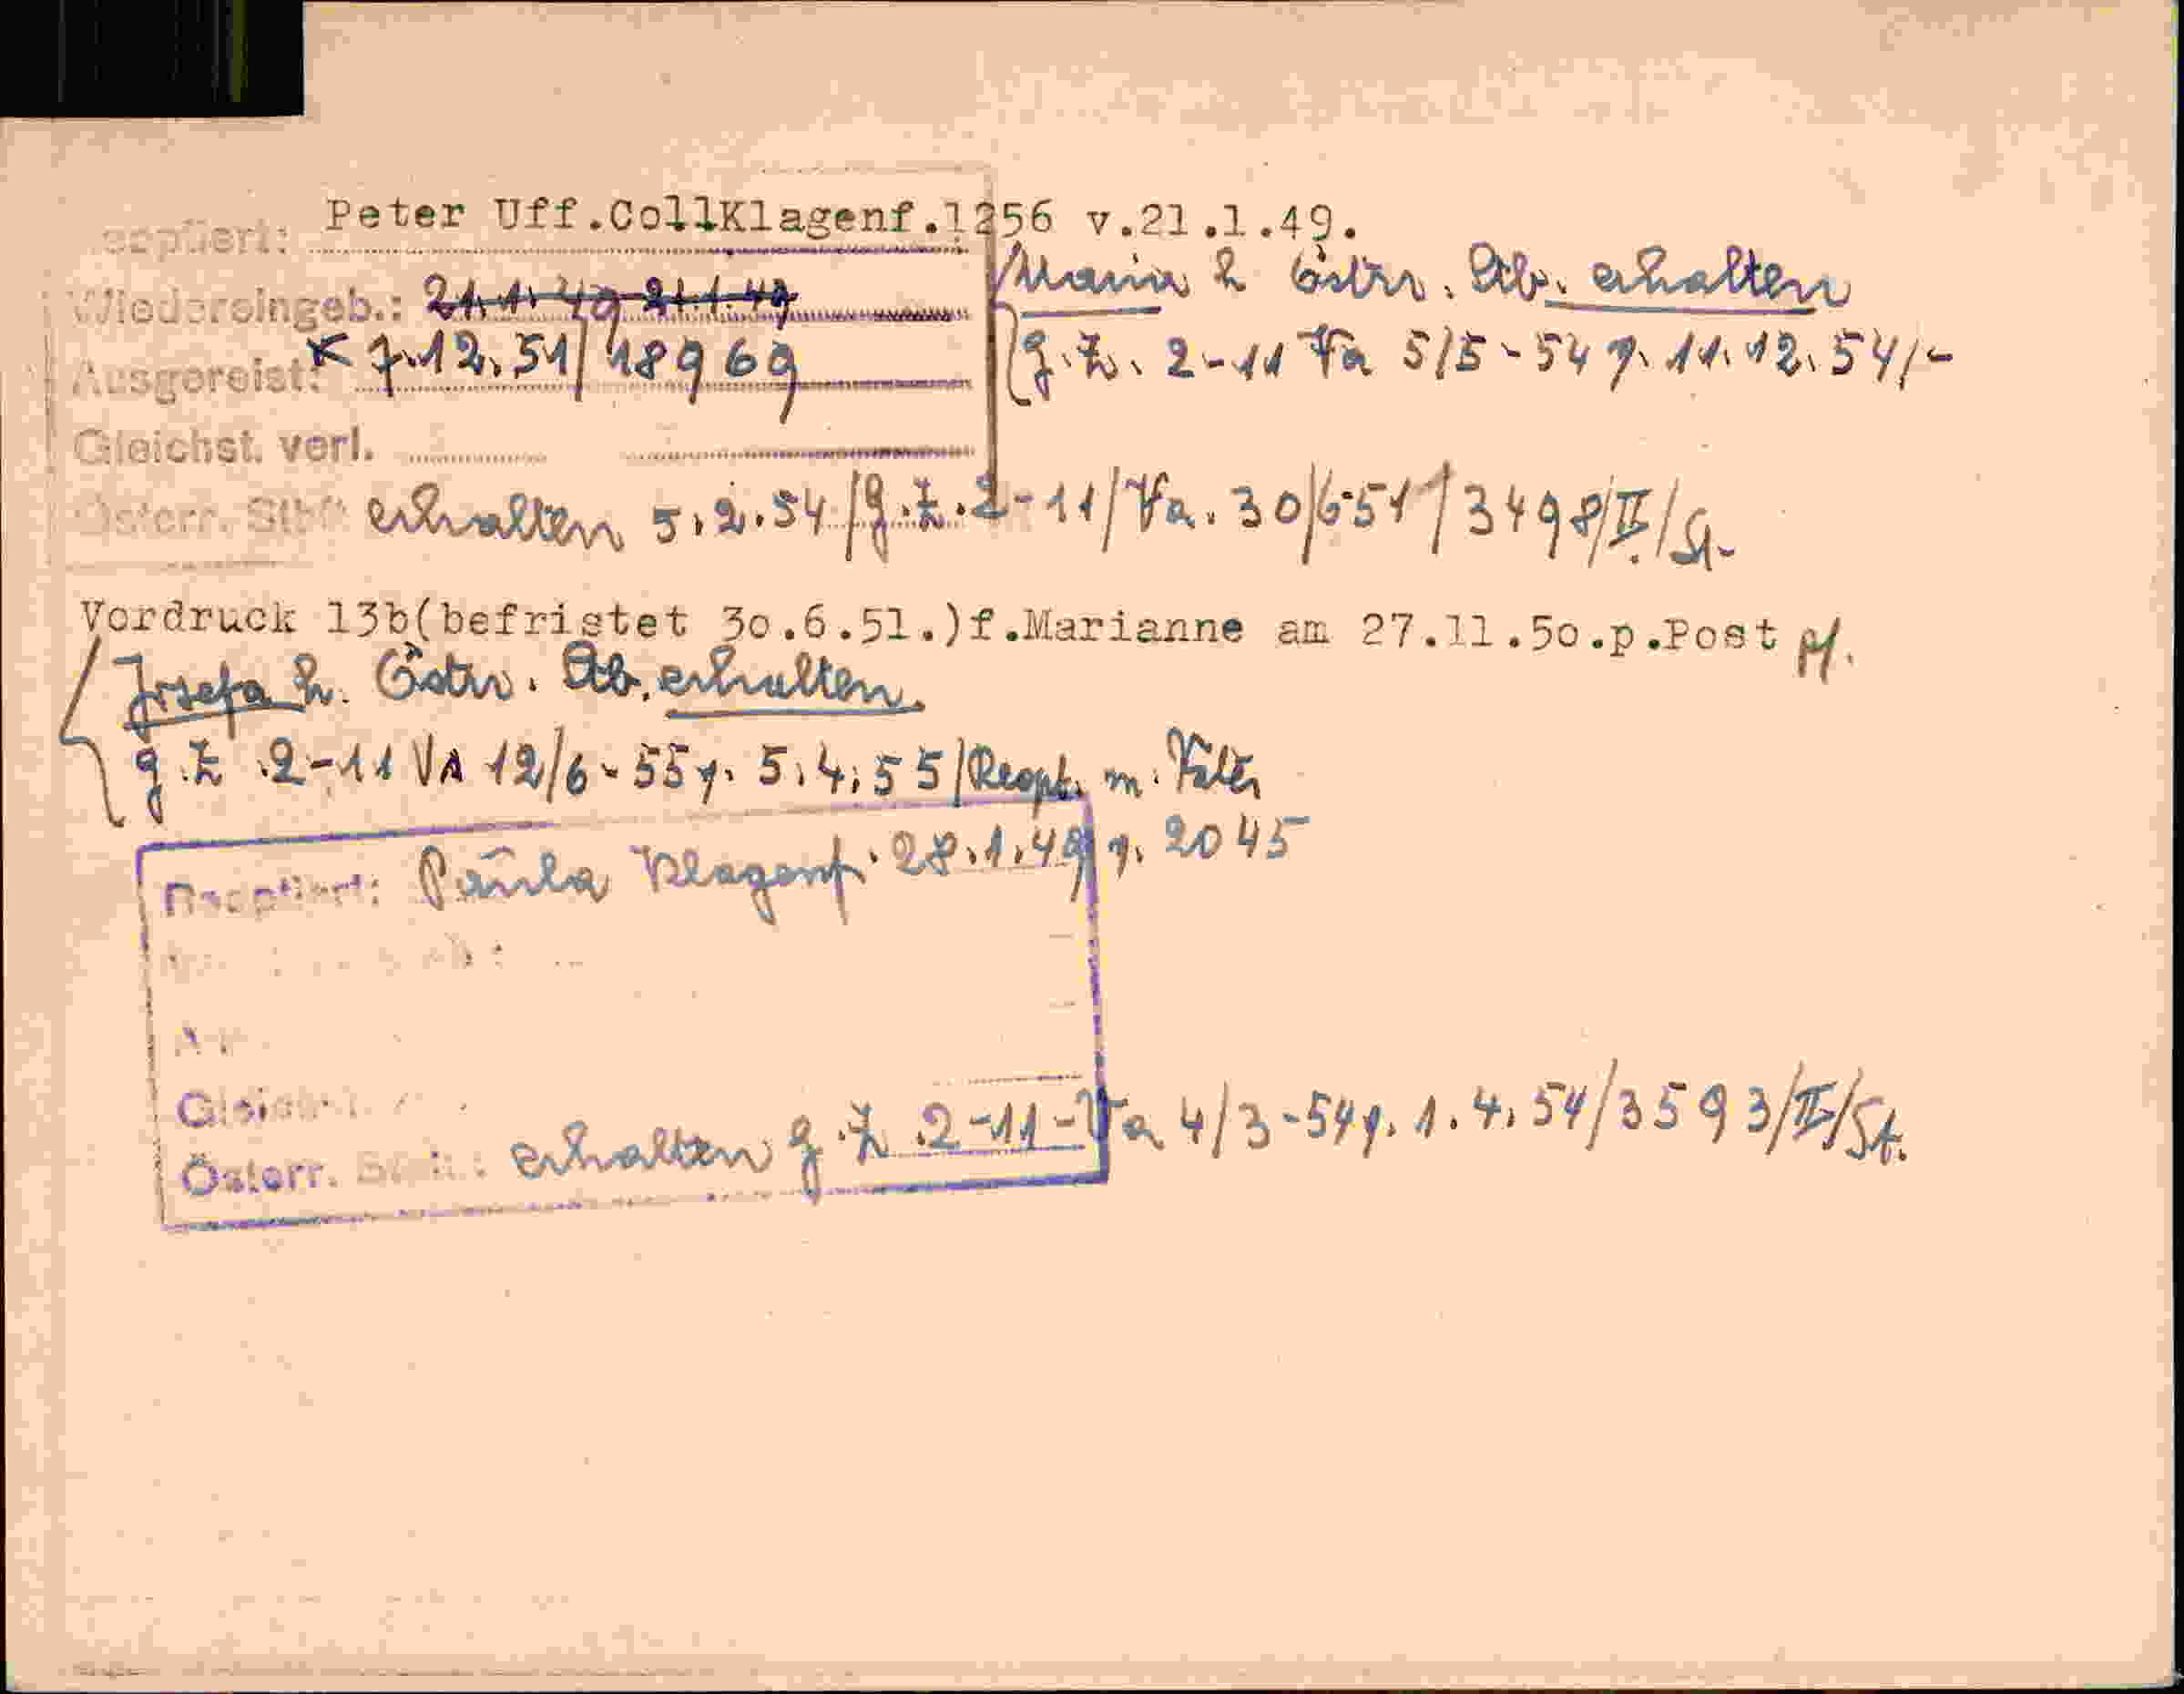 Reoptiert: Peter Uff.CollKlagenf.1256 v.21.1.49.
Wiedereingeb.: 21.1.49 21.1.49
Maria h. Östr. Stb. erhalten
Ausgereist: 7.12.51/18969
g.Z. 2-11 Va 5/5-54 v. 11.12.54/-
Gleichst. verl.
Österr. Stb. erhalten 5.2.54/g.Z.2-11/Va.30/6-51/3498/II/St.
Vordruck 13b(befristet 3o.6.51.)f.Marianne am 27.11.5o.p.Post
Josefa h. Östr. Stb. erhalten.
g.Z.2-11 VA 12/6-55 v. 5.4.55/Reopt. m.
Reoptiert: Paula Klagenf. 28.1.49 v. 2045
Gleichst.
Österr. erhalten g.Z.2-11-Va 4/3-54 v. 1.4.54/3593/II/St.